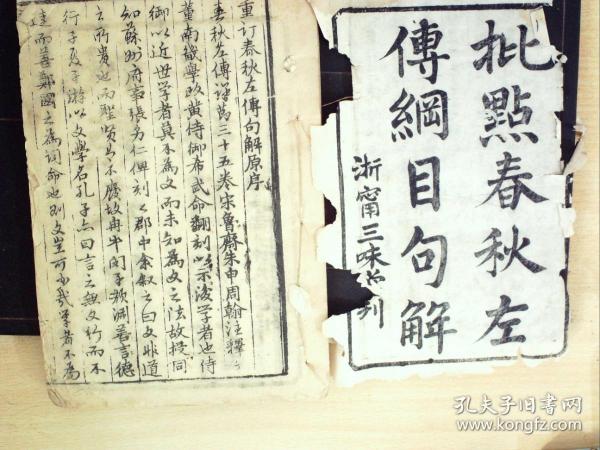 批點春秋左
傳綱目句解
浙甯三味 刊
重訂春秋左傳句解原序
春秋左傳 三十五卷宋魯齋朱申周翰注釋
董南畿學政黃侍御希武命翻刻以示後學者也侍
御以近世學者莫不為文而未知為文之法故授同
知蘇州府事張 仁俾刻之郡中余叙之曰文非道
之所貴也而聖賢 不廢故冉牛閔子顏淵善言德
行子夏子游以文學名孔子亦曰言之無文行而不
遠而善鄭國之為詞命也則文豈可少哉學者不為
孔夫子旧书网
www.kongfz.com